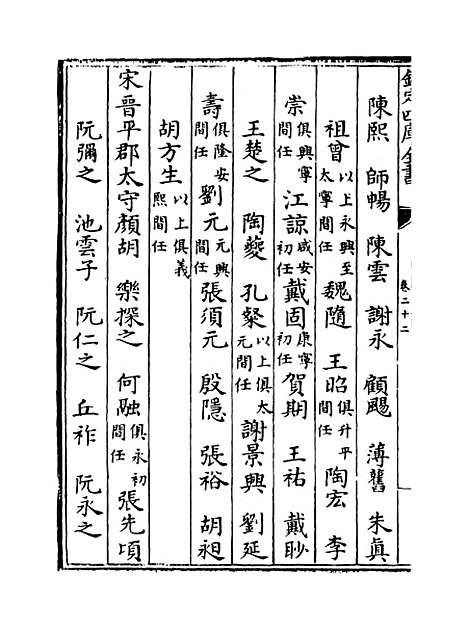 欽定四庫全書
卷二十二
陳熙　師暢　陳雲　謝永　顧颺　薄舊　朱眞
祖曾以上永興至太寧間任　魏隨　王昭俱升平間任　陶宏　李
崇俱興寧間任　江諒咸安初任　戴固康寧初任　賀期　王祐　戴眇
王楚之　陶夔　孔粲以上俱太元間任　謝景興　劉延
壽俱隆安間任　劉元元興間任　張須元　殷隱　張裕　胡昶
胡方生以上俱義熙間任
宋晉平郡太守顏胡　樂探之　何融俱永初間任　張先頊
阮彌之　池雲子　阮仁之　丘祚　阮永之